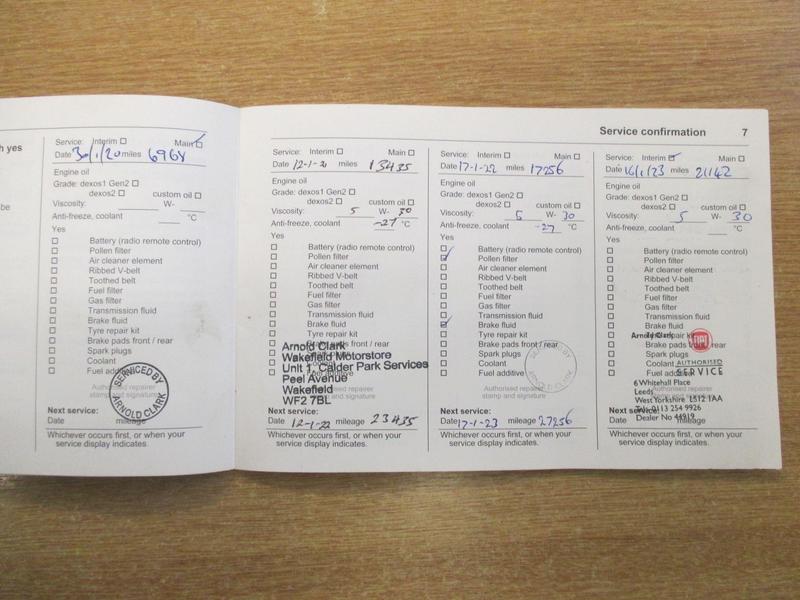 Service confirmation 7
h yes
be
Service: Interim Main
Date 30/1/20 miles 6968
Engine oil
Grade: dexos1 Gen2
dexos2 custom oil
Viscosity: W-
Anti-freeze, coolant °C
Yes
Battery (radio remote control)
Pollen filter
Air cleaner element
Ribbed V-belt
Toothed belt
Fuel filter
Gas filter
Transmission fluid
Brake fluid
Tyre repair kit
Brake pads front / rear
Spark plugs
Coolant
Fuel additive
Authorised repairer
stamp and signature
SERVICED BY
ARNOLD CLARK
Next service:
Date mileage
Whichever occurs first, or when your
service display indicates.
Service: Interim Main
Date 12-1-21 miles 13435
Engine oil
Grade: dexos1 Gen2
dexos2 custom oil
Viscosity: 5 W- 30
Anti-freeze, coolant -27 °C
Yes
Battery (radio remote control)
Pollen filter
Air cleaner element
Ribbed V-belt
Toothed belt
Fuel filter
Gas filter
Transmission fluid
Brake fluid
Tyre repair kit
Brake pads front / rear
Arnold Clark
Wakefield Motorstore
Unit 1, Calder Park Services
Peel Avenue
Wakefield
WF2 7BL
Fuel additive
Authorised repairer
stamp and signature
Next service:
Date 12-1-22 mileage 23435
Whichever occurs first, or when your
service display indicates.
Service: Interim Main
Date 17-1-22 miles 17256
Engine oil
Grade: dexos1 Gen2
dexos2 custom oil
Viscosity: 5 W- 30
Anti-freeze, coolant -27 °C
Yes
Battery (radio remote control)
Pollen filter
Air cleaner element
Ribbed V-belt
Toothed belt
Fuel filter
Gas filter
Transmission fluid
Brake fluid
Tyre repair kit
Brake pads front / rear
Spark plugs
Coolant
Fuel additive
SERVICED BY
ARNOLD CLARK
Authorised repairer
stamp and signature
Next service:
Date 17-1-23 mileage 27256
Whichever occurs first, or when your
service display indicates.
Service: Interim Main
Date 16/1/23 miles 21142
Engine oil
Grade: dexos1 Gen2
dexos2 custom oil
Viscosity: 5 W- 30
Anti-freeze, coolant °C
Yes
Battery (radio remote control)
Pollen filter
Air cleaner element
Ribbed V-belt
Toothed belt
Fuel filter
Gas filter
Transmission fluid
Brake fluid
Tyre repair kit
Brake pads front / rear
Spark plugs
Coolant
Fuel additive
Arnold Clark
FIAT
AUTHORISED
SERVICE
6 Whitehall Place
Leeds
West Yorkshire LS12 1AA
Tel: 0113 254 9926
Dealer No 44919
Next service:
Date mileage
Whichever occurs first, or when your
service display indicates.